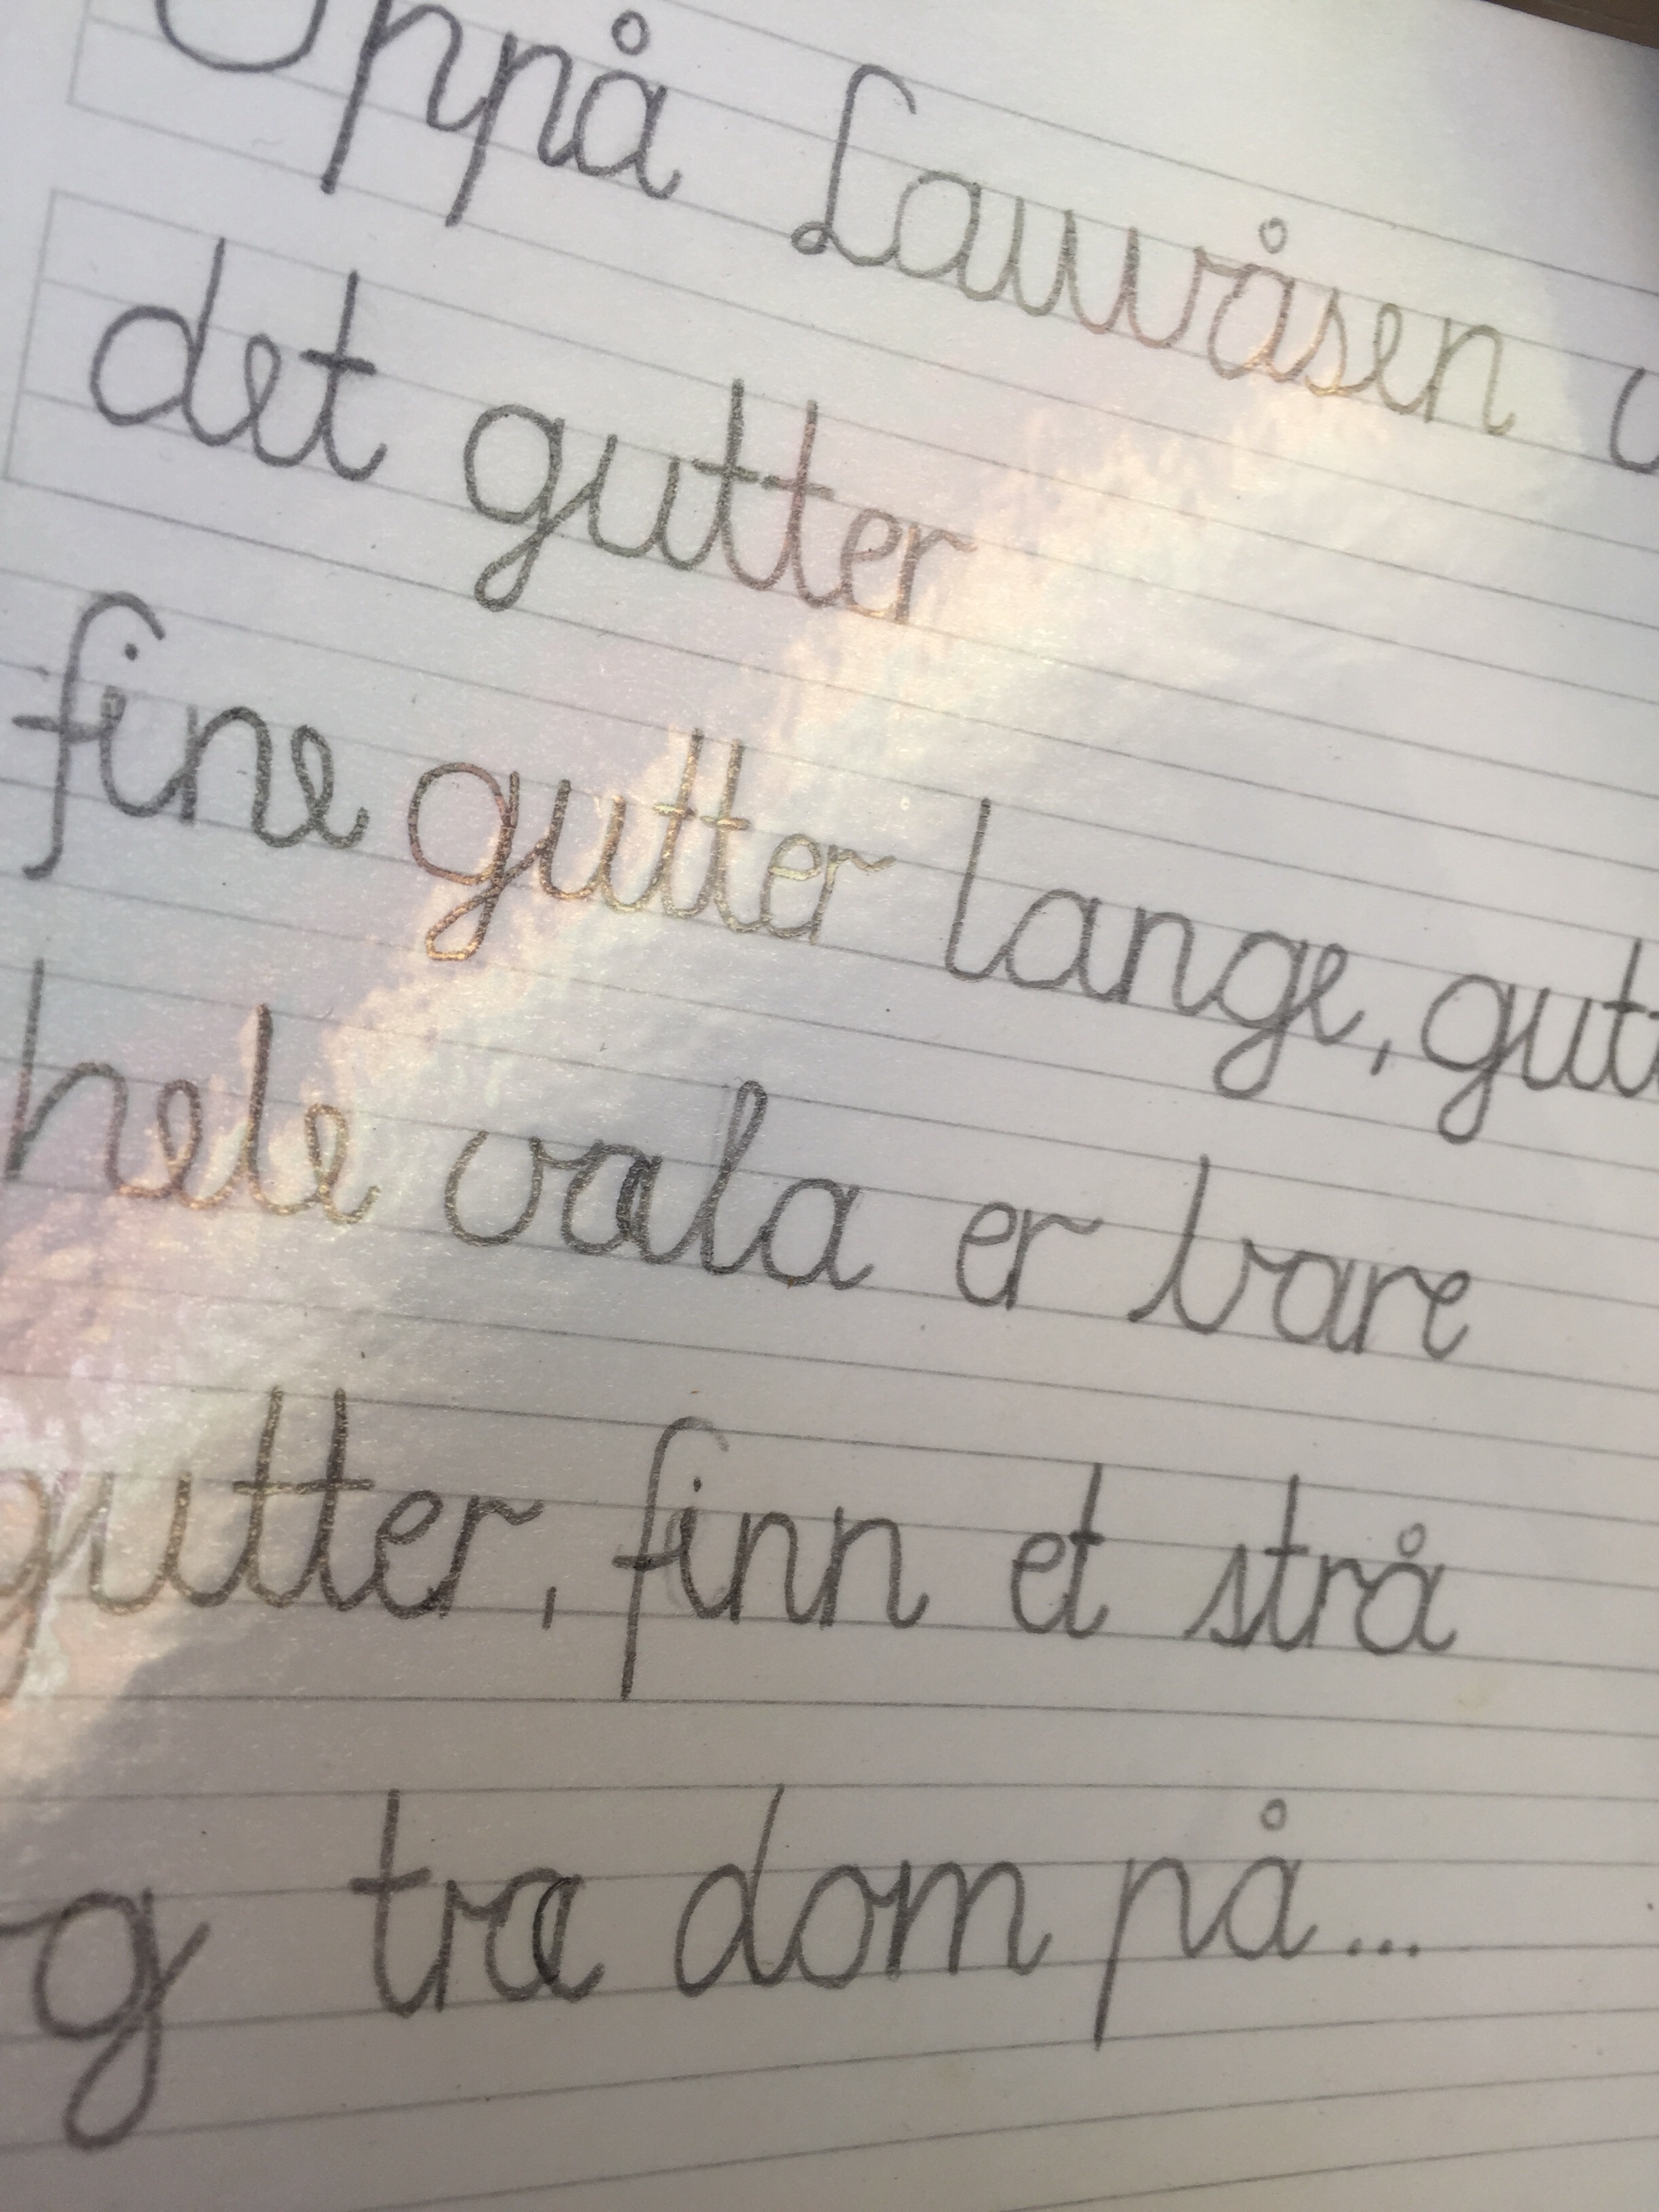 Oppå Lauvåsen
det gutter
fine gutter lange, gutt
hele vala er bare
gutter, finn et strå
og tra dom på...